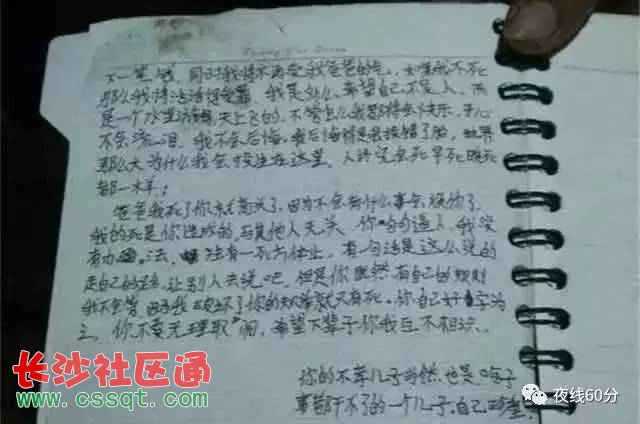 下一笔钱，同时我将不再受我爸爸的气，如果我不死
那么我将活活得受罪，我是多么希望自己不是人，而
是一个水里游得天上飞的，不管怎么我都将会快乐，开心
不会流泪，我不会后悔，我后悔得是我投错了胎，世界
那么大为什么我会投生在这里，人终究会死早死晚死
都一样；
爸爸我死了你就高兴了，因为不会有什么事会烦你了，
我的死是你造成的与其他人无关，你句句逼人，我没
有办法，独有一死方休止，有一句话是这么说的
走自己的路，让别人去说吧，但是你既然有自己的规则
我不会管，因为我破坏了你的规矩就只有死。你自己好自为
之，你不要无理取闹，希望下辈子你我互不相识．
你的不孝儿子
事都干不了的一个儿子．自己
长沙社区通
www.cssqt.com
夜线60分